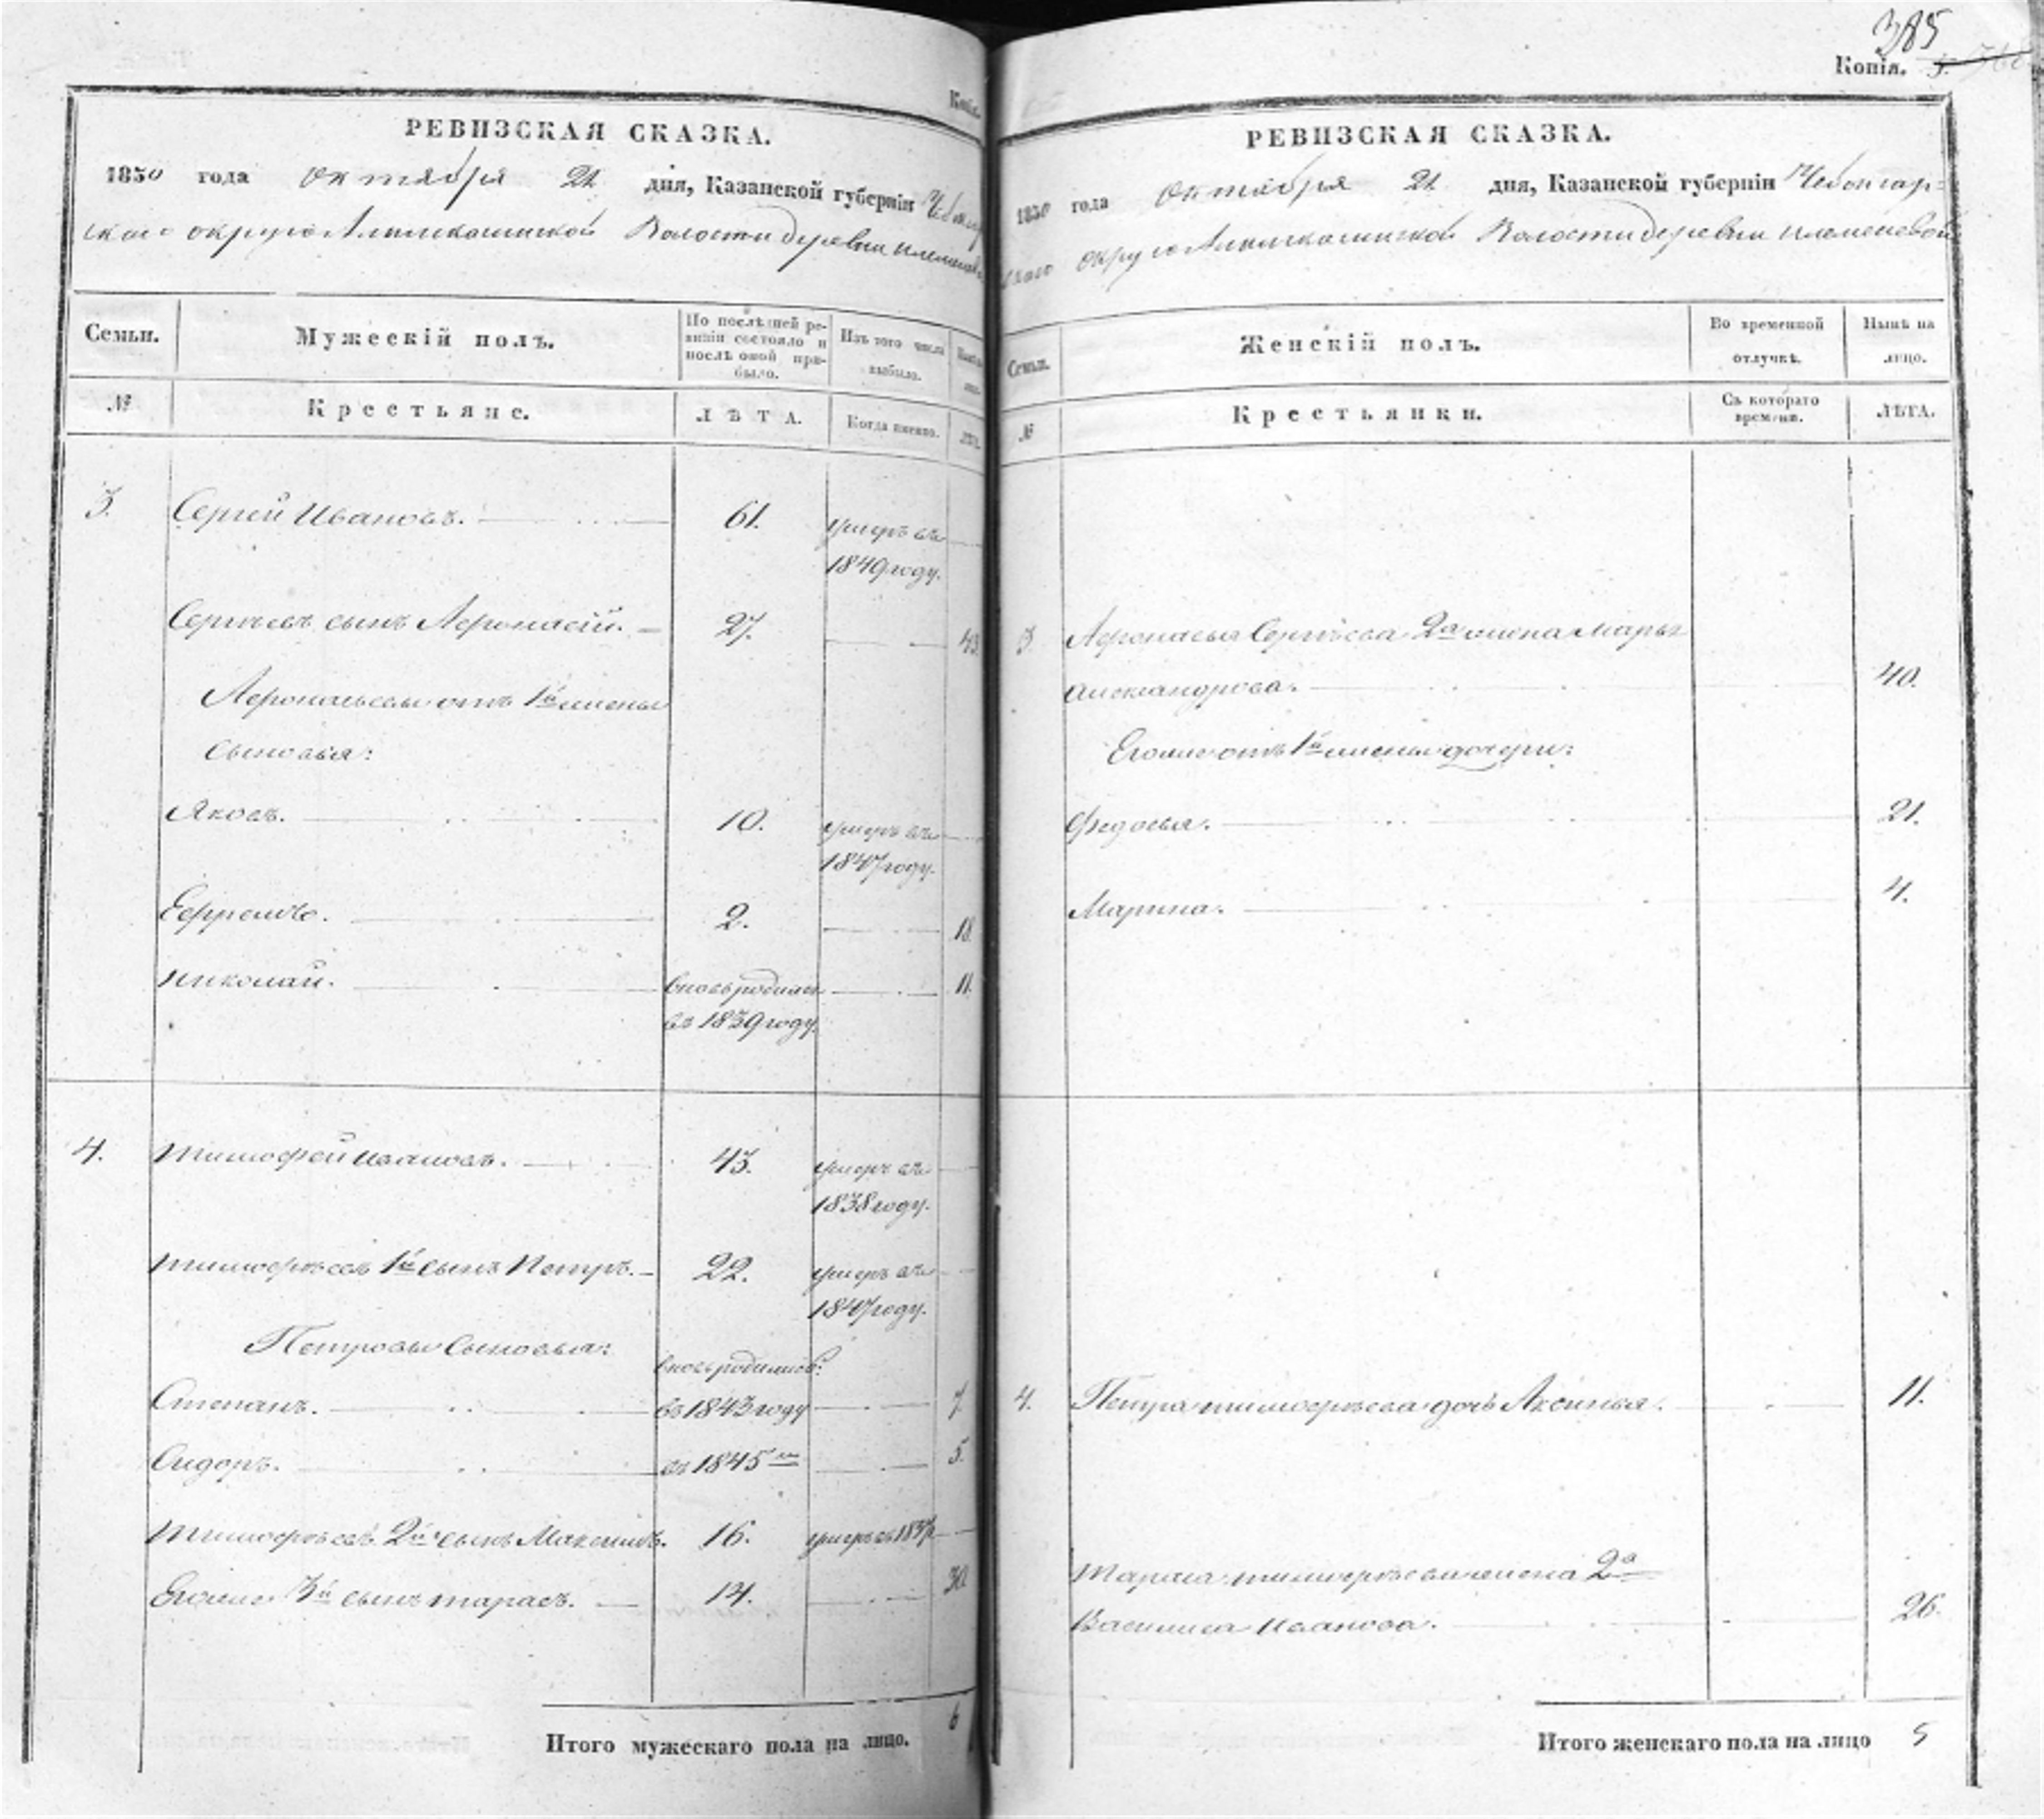 Копія.
РЕВИЗСКАЯ СКАЗКА.
1850 года октября 21 дня, Казанской губерніи
скаго округа Волости деревни
Семьи.
Мужескій полъ.
По послѣдней ревизіи состояло и послѣ оной прибыло.
Изъ того числа выбыло.
№
Крестьяне.
ЛѢТА.
Когда именно.
3. Сергей Ивановъ. 61. умеръ въ
1849 году.
Сергѣевъ сынъ Афонасій. 27. 43.
Афонасьевы отъ 1й жены
сыновья:
Яковъ. 10. умеръ въ
1847 году.
Ефремъ. 2. 18.
Николай. вновь родился 11.
въ 1839 году.
4. Тимофей Ивановъ. 43. умеръ въ
1838 году.
Тимофѣевъ 1й сынъ Петръ. 22. умеръ въ
1847 году.
Петровы сыновья: вновь родились:
Степанъ. въ 1843 году 7.
Сидоръ. въ 1845 м 5.
Тимофѣевъ 2й сынъ Максимъ. 16. умеръ въ
Егоже 3й сынъ Тарасъ. 14. 30.
Итого мужескаго пола на лицо. 6
385
Копія.
РЕВИЗСКАЯ СКАЗКА.
1850 года октября 21 дня, Казанской губерніи Чебоксар-
скаго округа Волости деревни
Семьи.
Женскій полъ.
Во временной отлучкѣ.
Нынѣ на лицо.
№
Крестьянки.
Съ котораго времени.
ЛѢТА.
3. Афонасья Сергѣева 2а жена Марья
Александрова. 40.
Егоже отъ 1й жены дочери:
Федосья. 21.
Марина. 4.
4. Петра Тимофѣева дочь Аксинья. 11.
Тараса Тимофѣева жена 2а
Василиса Иванова. 26.
Итого женскаго пола на лицо 5